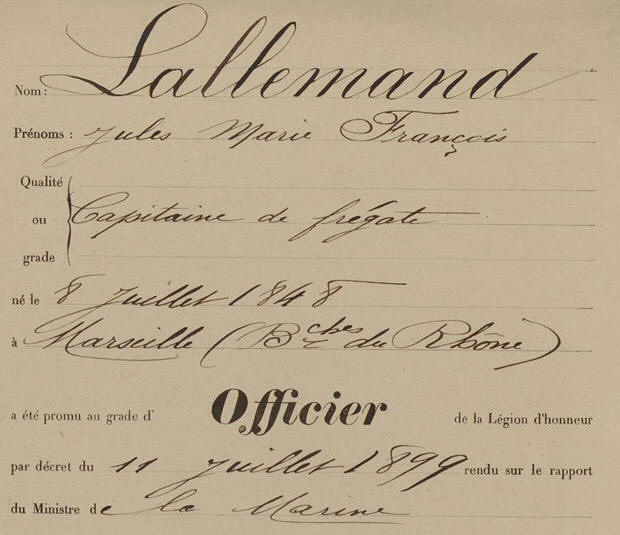 Nom: Lallemand
Prénoms : Jules Marie François
Qualité
ou Capitaine de frégate
grade
né le 8 Juillet 1848
à Marseille (Bches du Rhône)
a été promu au grade d' Officier de la Légion d'honneur
par décret du 11 Juillet 1899 rendu sur le rapport
du Ministre de la Marine